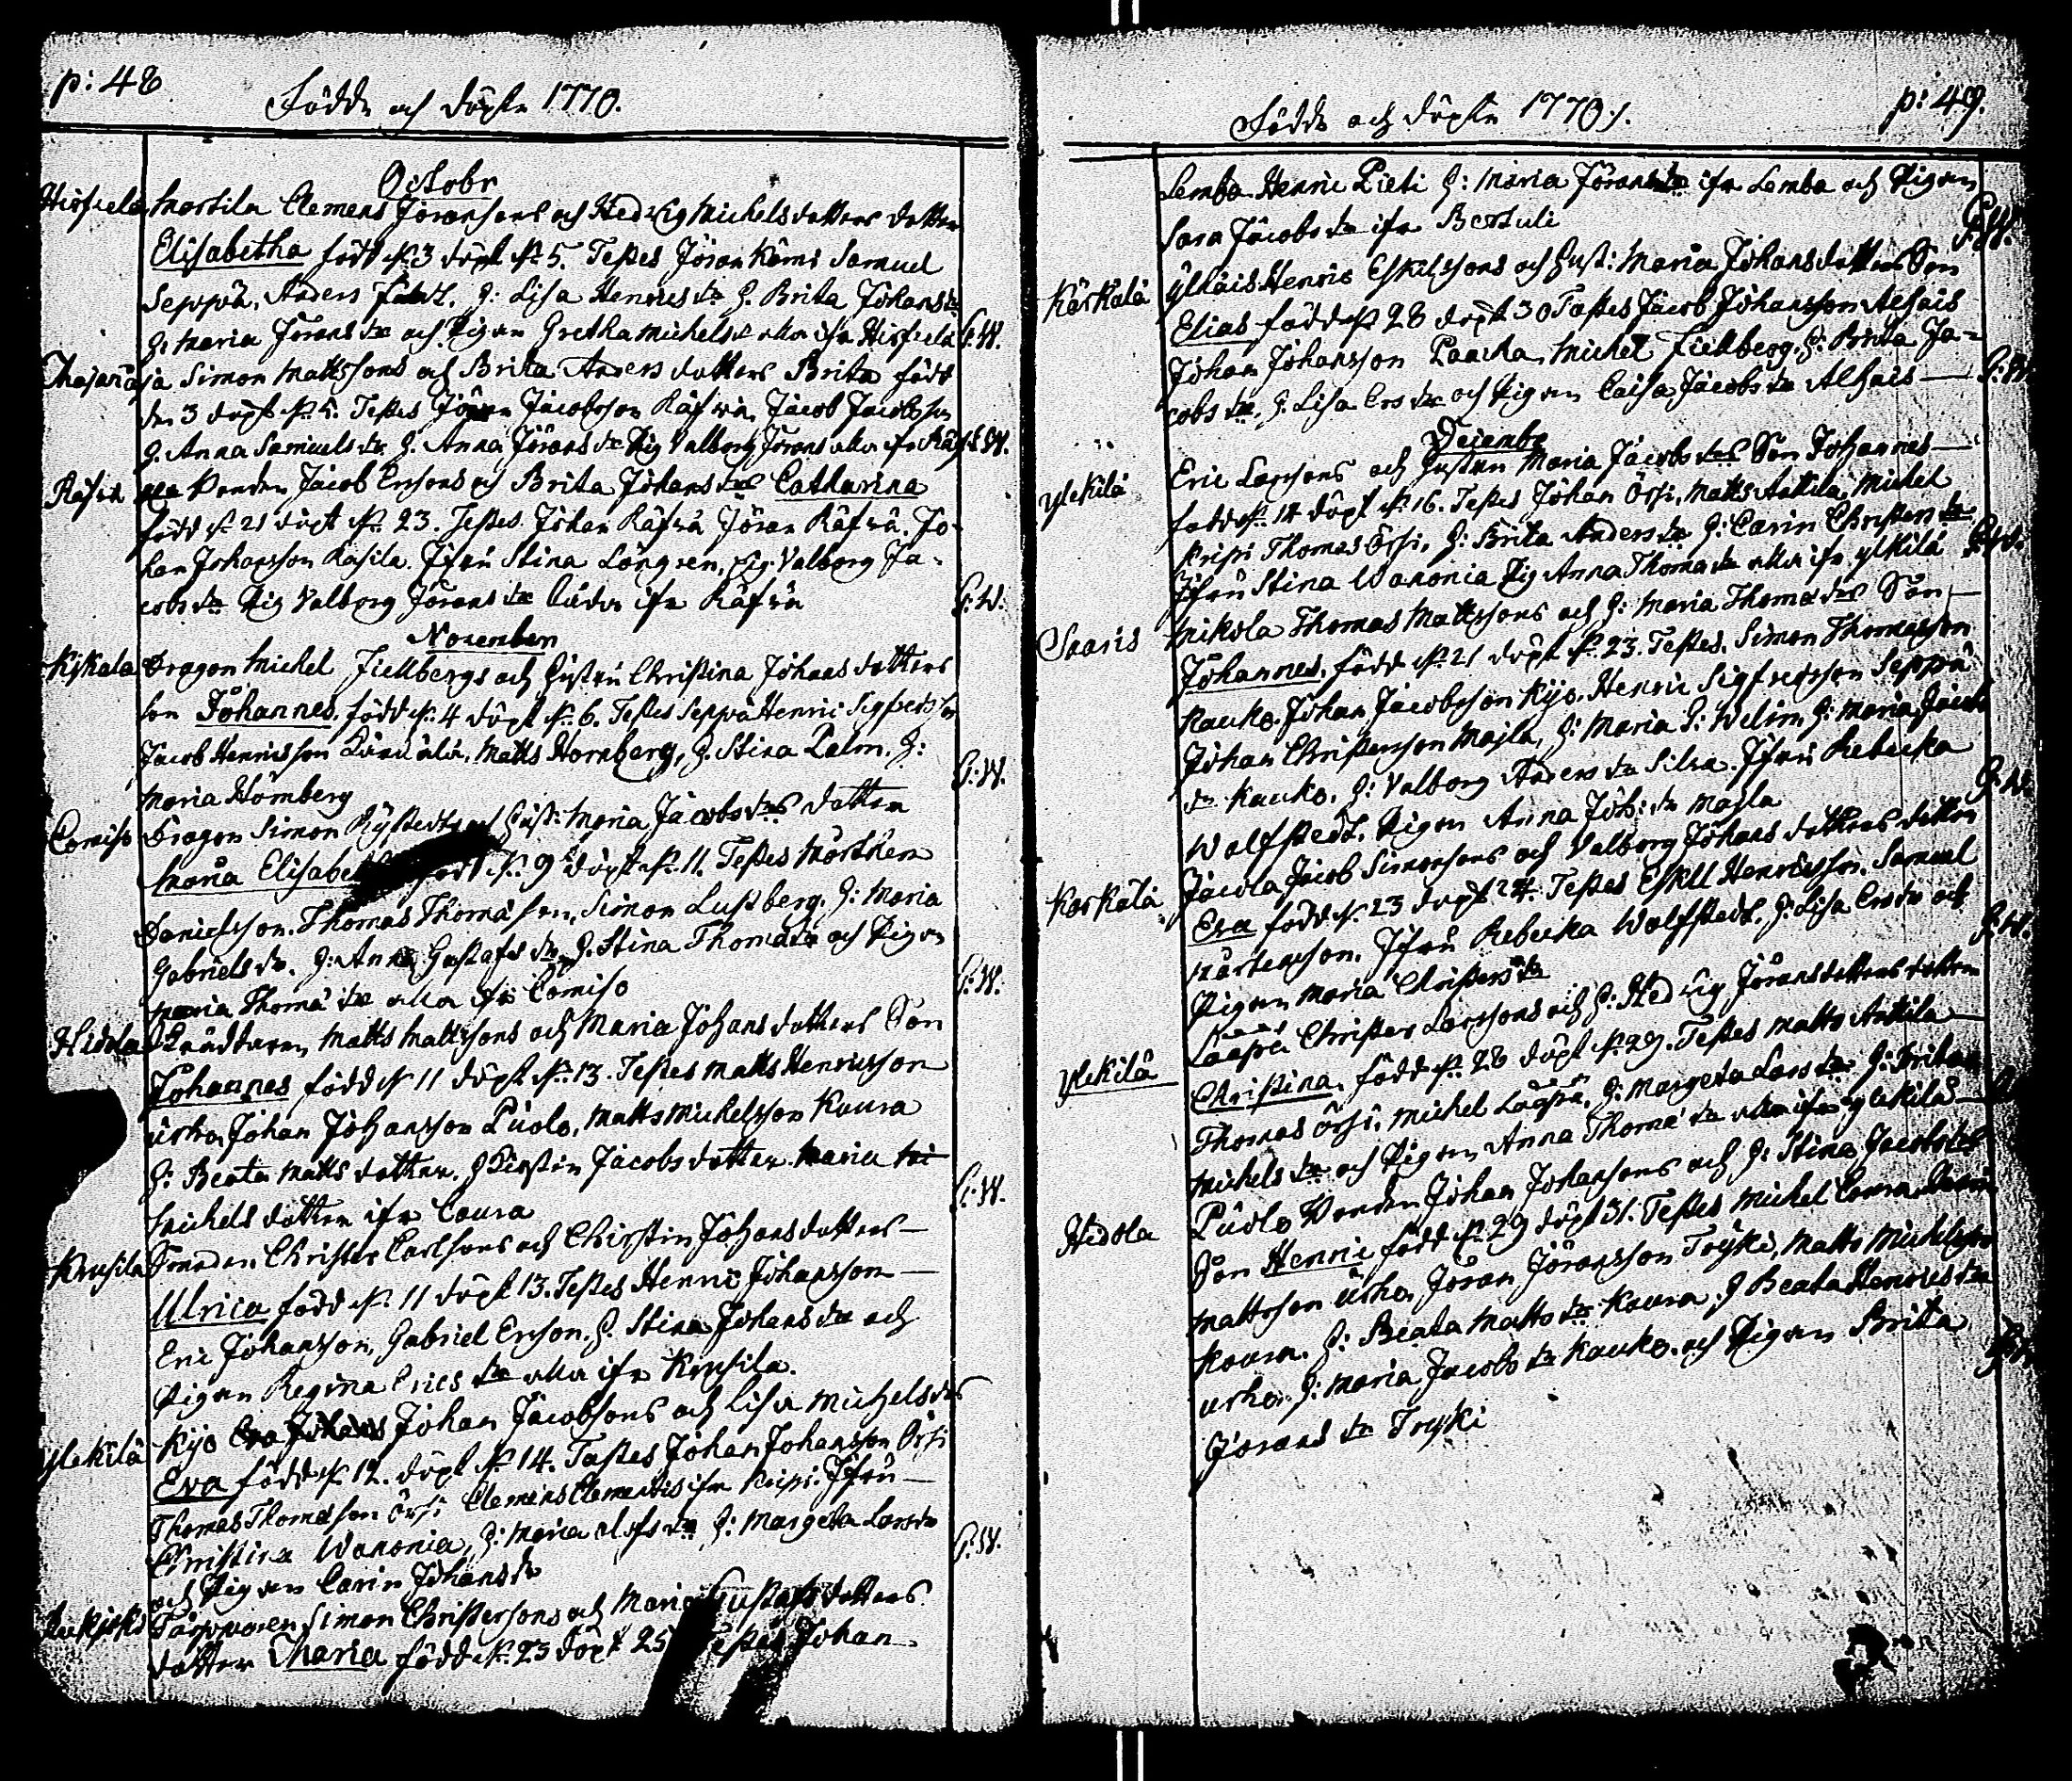 p: 48
Födde och döpte 1770.
Octobr
Hirsiela Martila Clemens Jöransons och Hedvig Michelsdotters dotter
Elisabetha född d. 3 döpt d. 5. Testes Jöran Kämi Samuel
Seppä, Anders H: Lisa Henricsdr H. Brita Johansdr
H: Maria Jöransdr och Pigan Gretha Michelsdr alla ifr Hirsiela G: W.
Simon Mattssons och Brita Andersdotters Brita född
den 3 döpt d. 5. Testes Jöran Jacobsson Räfvä, Jacob Jacobsson
H. Anna Samuelsdr H. Anna Jöransdr Pig Valborg Jörans alla ifr W.
Bonden Jacob Ersons och Brita Johansdrs Catharina
född d. 21 döpt d. 23. Testes Johan Räfvä Jöran Räfvä. Jo-
han Johansson Kasila. Jfru Stina Löngren, Pig: Valborg Ja-
cobsdr Pig Valborg Jöransdr ifr Räfvä G: W.
November
Kijkala Dragon Michel Fiellbergs och Hustru Christina Johansdotters
Son Johannes, född d. 4 döpt d. 6. Testes Seppä Henric Sigfredsson
Jacob Henricsson Matts Hornberg, H. Stina Palm. H:
Maria Hornberg G: W.
Comiso Dragon Simon och Hust: Maria Jacobsdrs dotter
Maria född d. 9 döpt d. 11. Testes Mårthen
Danielsson. Thomas Thomason, Simon Lustberg, H: Maria
Gabrielsdr. H: Anna Gustafsdr H. Stina Thomadr och Pigan
Maria Thomadr alla ifr Comiso G: W.
Hidola Matts Mattssons och Maria Johansdotters Son
Johannes född d 11 döpt d. 13. Testes Matts Henricsson
Urho, Johan Johansson Puolo, Matts Michelsson Koura
H: Beata Mattsdotter, H Kirstin Jacobsdotter Maria Mi-
Michelsdotter ifr Coura G: W.
Krusila Smeden Christer Carlsons och Christin Johansdotters
Ulrica född d. 11 döpt 13. Testes Henric Johansson
Eric Johansson, Gabriel Erson. H. Stina Johansdr och
Pigan Regina Ericsdr alla ifr Krusila.
Ylekilä Kijo Johan Jacobsons och Lisa Michelsdrs
Eva född d. 12. döpt d. 14. Testes Johan Johansson Örsi
Thomas Thomason Örsi Clemens Clementis ifr Krisi. Jfru
Christina Wanonia, H: Maria H: Margeta Larsdr
och Pigan Carin Johansdr G: W.
Torpparen Simon Christersons och Maria Gustafsdotters
dotter Maria född d. 23 döpt 25 Testes Johan
Födde och döpte 1770.
p: 49.
Lemba Henric Pieti H: Maria Jöransdr ifr Lemba och Pigan
Sara Jacobsdr ifr Bertuli G: W.
Kärkälä Henric Eskilssons och Hust: Maria Johansdotters Son
Elias född d 28 döpt 30 Testes Jacob Johansson Alhais
Johan Johansson Michel Fiellberg. H: Brita Ja-
cobsdr, H: Lisa Ersdr och Pigan Caisa Jacobsdr Alhais G: W.
Decembr
Ylekilä Eric Larssons och Hustru Maria Jacobsdrs Son Johannes
född d. 14 döpt d. 16. Testes Johan Örsi, Matts Anttila, Michel
Krisi Thomas Örsi, H: Brita Andersdr H: Carin Christersdr
Jfru Stina Wanonia Pig Anna Thomadr alla ifr Ylekilä G: W.
Saaris Mikola Thomas Mattssons och H: Maria Thomadrs Son
Johannes, född d. 21 döpt d. 23. Testes. Simon Thomasson
Kauko, Johan Jacobsson Kijo, Henric Sigfredsson Seppä
Johan Christersson Majla, H: Maria G: Welin, H: Maria Jacobs
dr Kauko, H: Valborg Andersdr Silva. Jfru Rebecka
Wolffstedt. Pigan Anna Joh:dr Majla G: W.
Kärkälä Jacola Jacob Simonsons och Valborg Johansdotters dotter
Eva född d. 23 döpt 24. Testes Eskil Henricsson. Samuel
Mårtensson. Jfru Rebecka Wolffstedt. H: Lisa Ersdr och
Pigan Maria Christersdr G: W.
Ylekilä Laapa Christer Larssons och H: Hedvig Jöransdotters dotter
Christina. född d. 28 döpt d. 29. Testes Matts Anttila
Thomas Örsi, Michel Laapa, H: Margeta Larsdr H: Brita
Michelsdr och Pigan Anna Thomadr alla ifr Ylekilä
Hidola Puolo Bonden Johan Johansons och H: Stina Jacobsdrs
Son Henric född d. 29 döpt 31. Testes Michel Coura,
Mattsson Urho, Jöran Jöransson Tryki, Matts Michelsson
Koura. H: Beata Mattsdr Koura. H Beata Henricsdr
Urho. H: Maria Jacobsdr Kauko. och Pigan Brita
Jöransdr Tryki